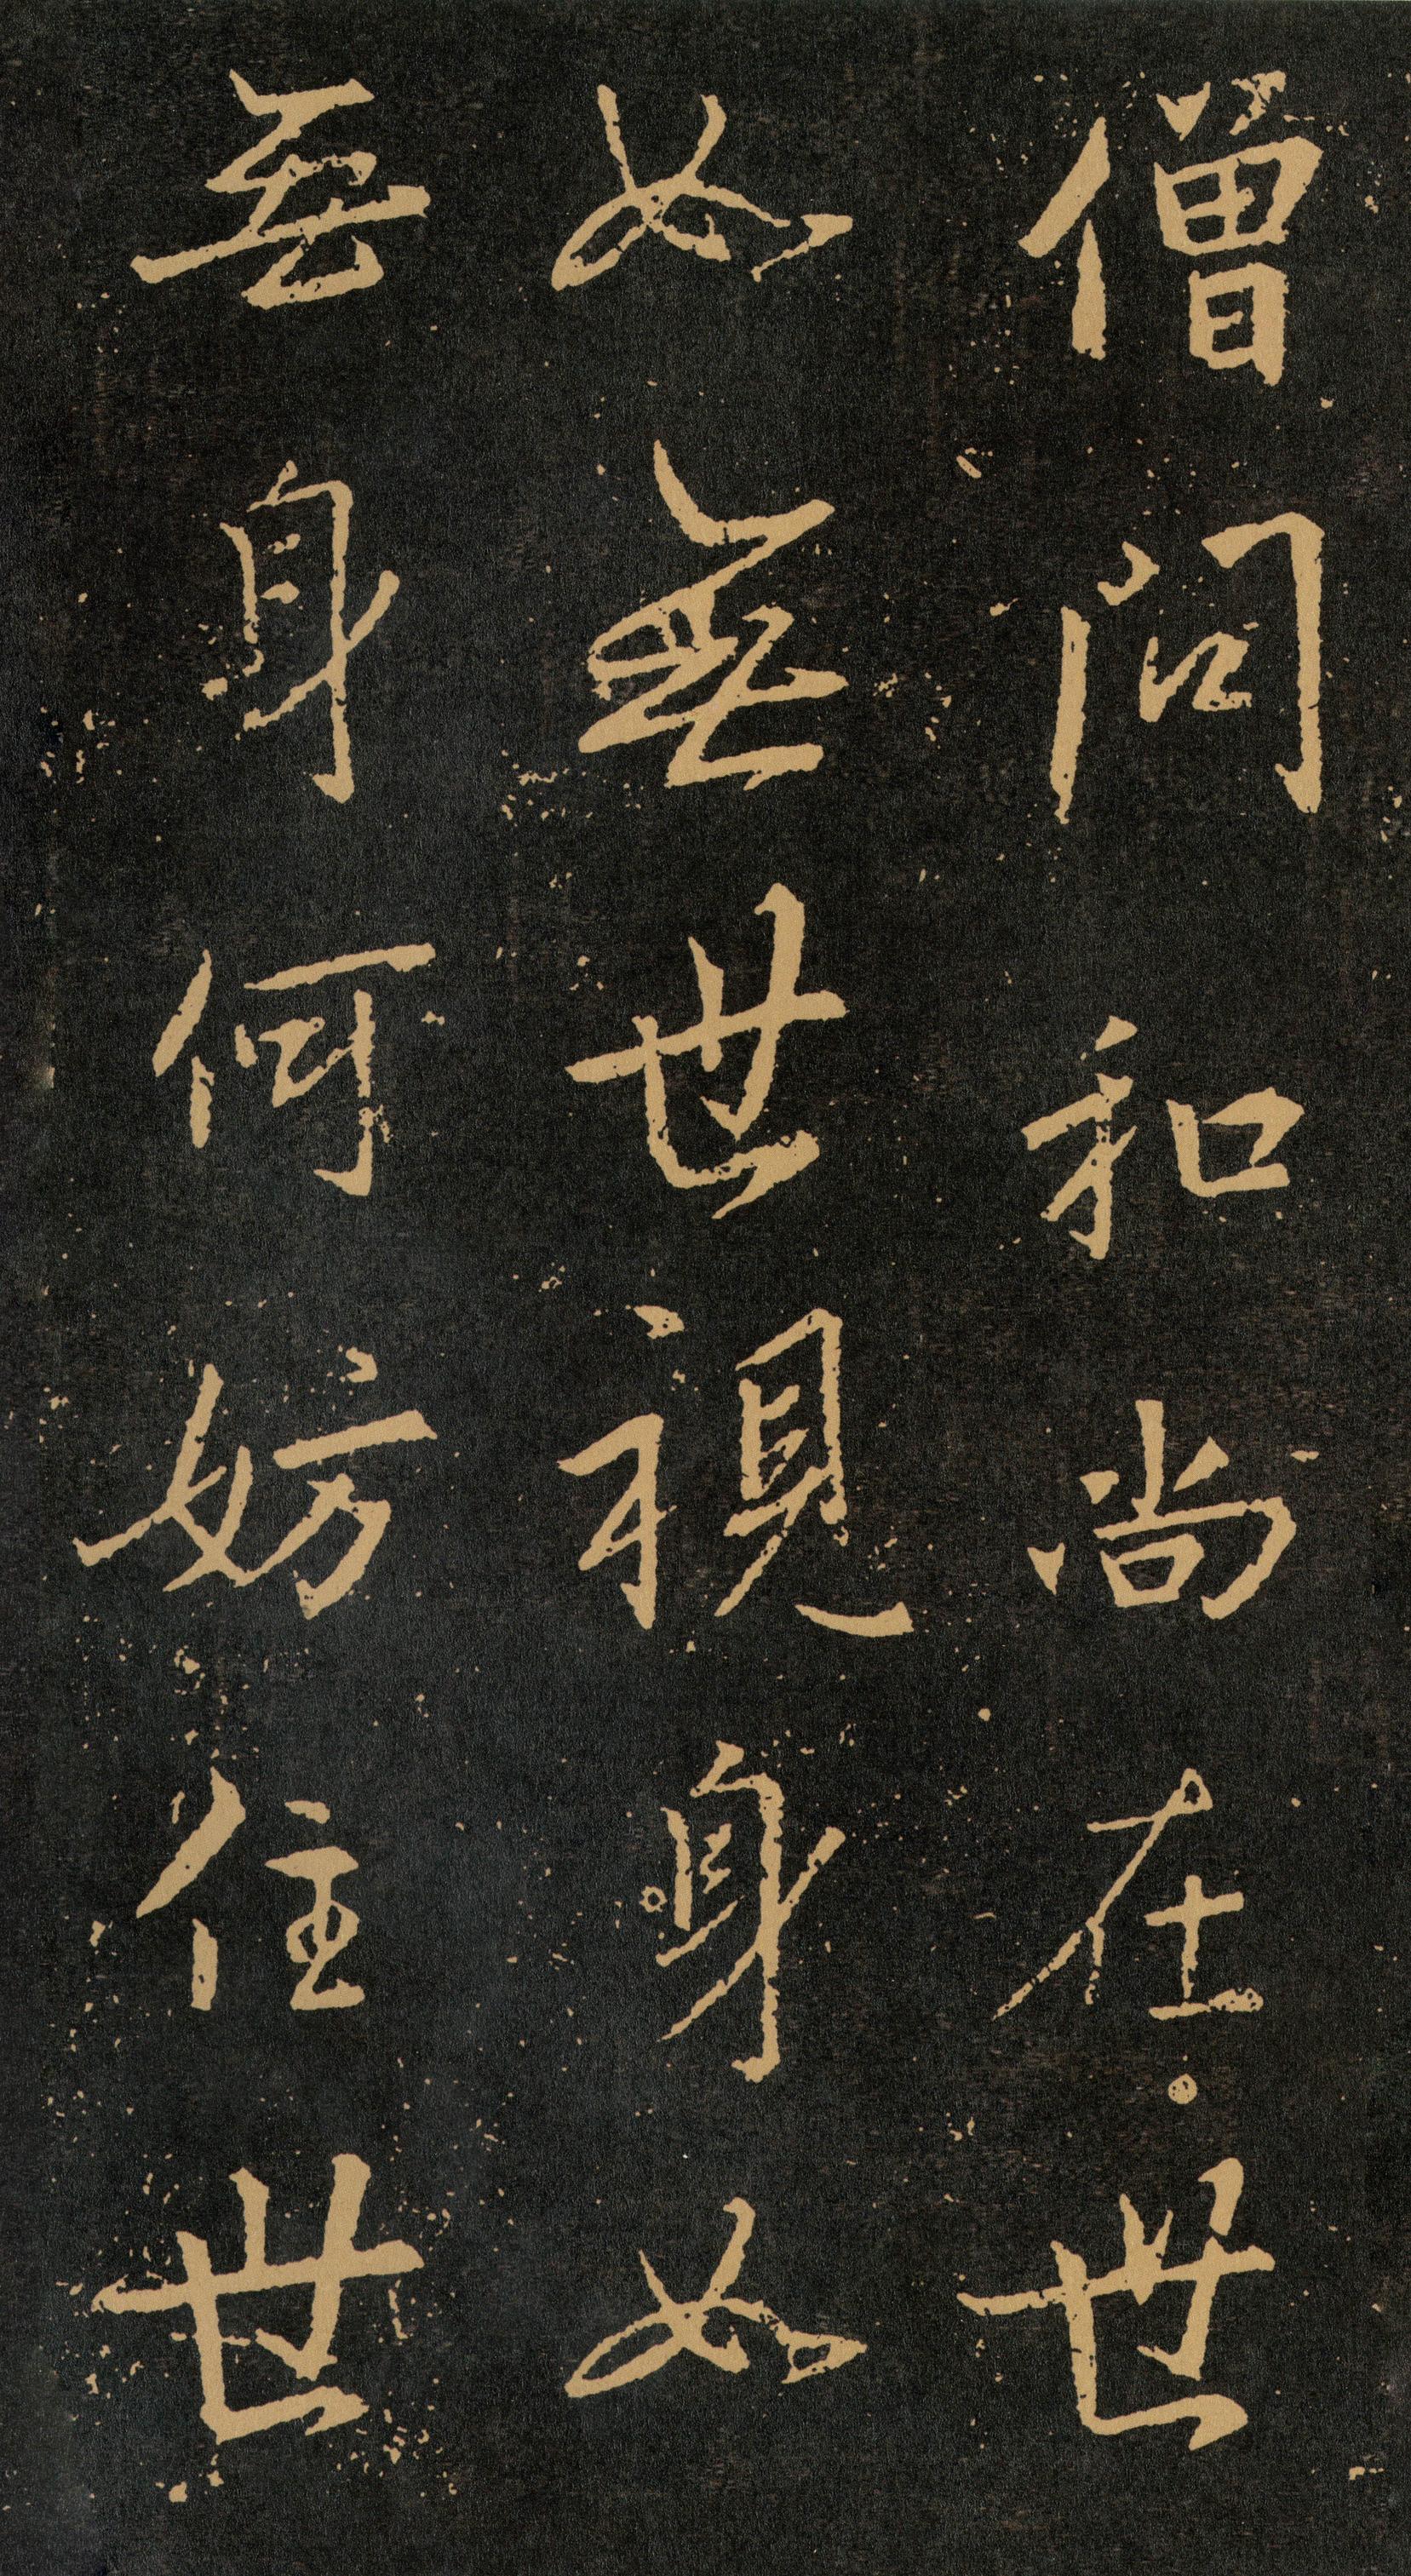 僧問和尚在世
如無世視身如
無身何妨住世